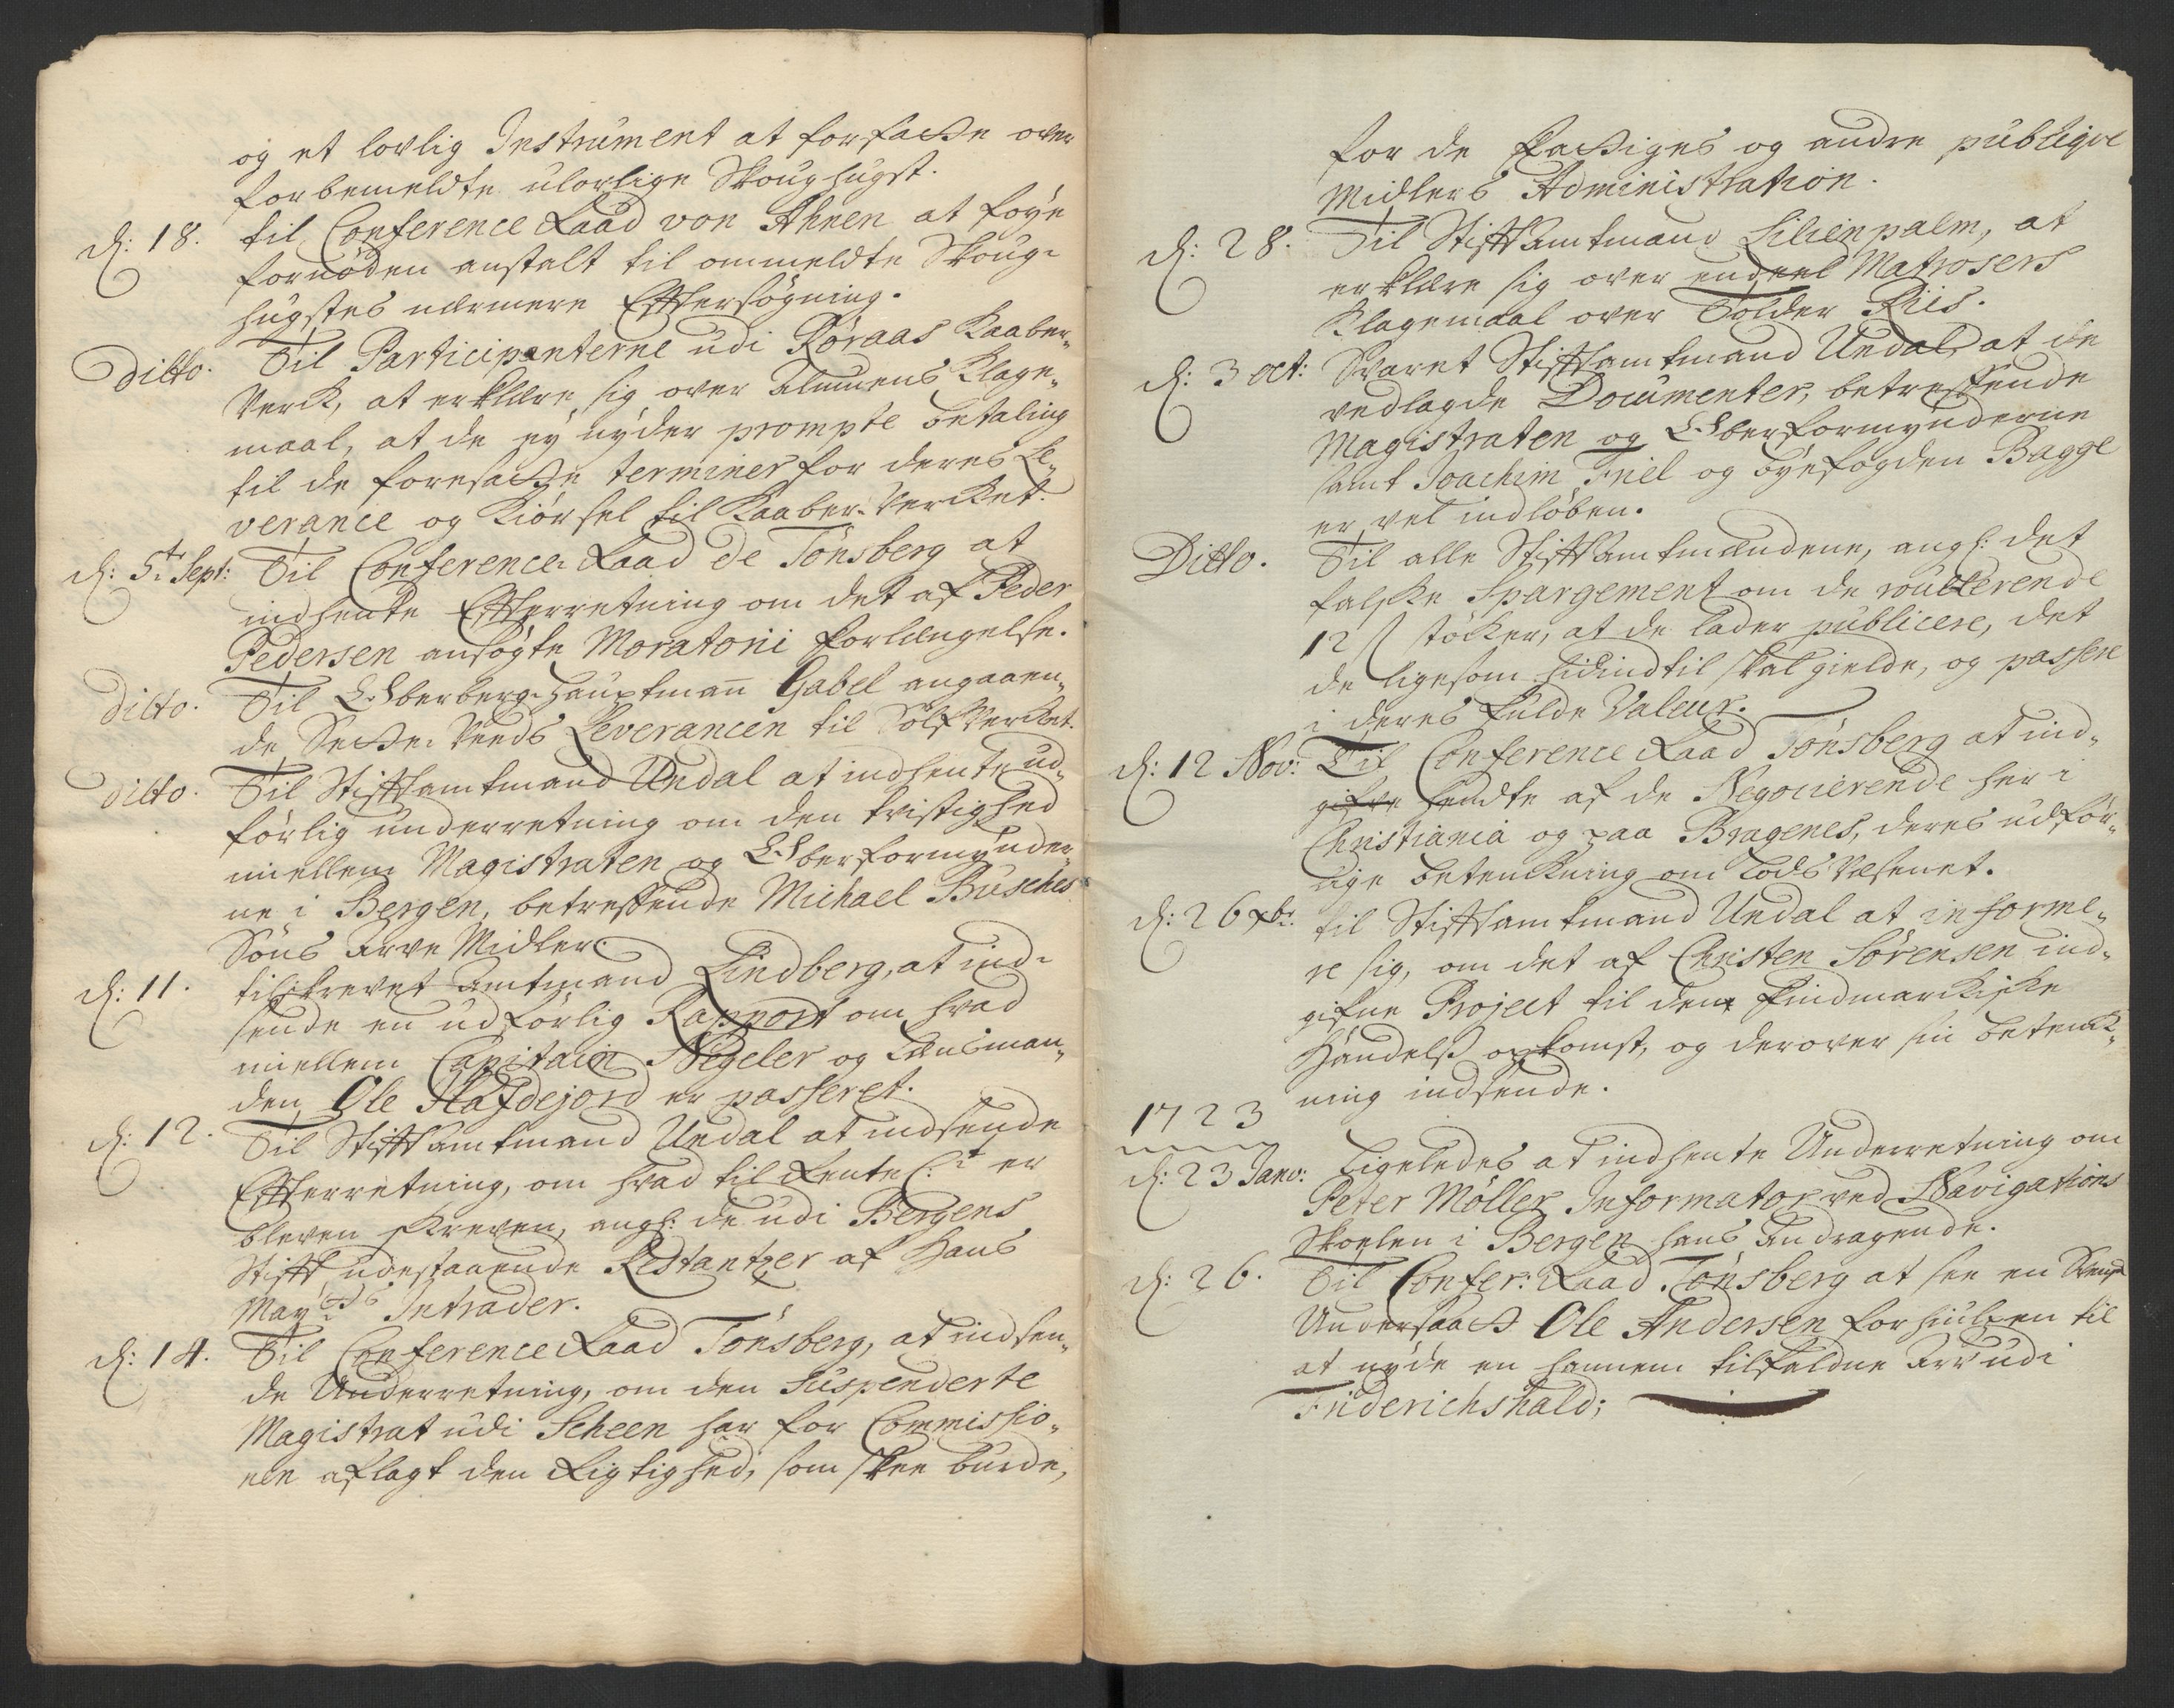 og et lovlig Instrument at forfatte over
forbemeldte ulovlige Skoughugst.
d: 18. til Conference Raad von Ahnen at föye
fornöden anstalt til ommeldte Skoug-
hugstes nærmere Efftersögning.
Ditto. Til Participanterne udi Röraas Kaaber-
Verck, at erklære sig over Almuens Klage-
maal, at de ey nyder prompte betaling
til de foresatte terminer for deres Le-
verance og Kiörsel til Kaaber-Vercket.
d: 5te Sept: Til Conference-Raad de Tönsberg at
indhente Effterretning om det af Peder
Pedersen ansögte Moratorii forlængelse.
Ditto. Til Ober berg-hauptmañ Gabel angaaen-
de Sætte-Veeds Leverancen til Sölf Vercket.
Ditto. Til Stifftamtmand Undal at indhente ud-
förlig underretning om den tvistighed
miellem Magistraten og Oberformynder-
ne i Bergen, betreffende Michael Busches
Söns arve Midler.
d: 11. tilskrevet Amtmand Lindberg, at ind-
sende en udförlig Rapport om hvad
miellem Capitain Negeler og Lensman-
den Ole Hafdejord er passeret.
d: 12. Til Stifftamtmand Undal at indsende
Effterretning, om hvad til Rente C:t er
bleven skreven, angl: de udi Bergens
Stifft udestaaende Restantzer af Hans
May:ts Intrader.
d: 14. Til Conference Raad Tönsberg, at indsen-
de Underretning, om den Suspenderte
Magistrat udi Scheen har for Commissio-
nen aflagt den Rigtighed, som skee burde,
for de fattiges og andre publique
Midlers Administration.
d: 28. Til Stifftamtmand Lilienpalm, at
erklære sig over endeel Matrosers
Klagemaal over Tolder Riis.
d: 3 oct: Svaret Stifftamtmand Undal, at de
vedlagde Documenter, betreffende
Magistraten og Oberformynderne
samt Joachim Friel og byefogden Bagge
er vel indlöben.
Ditto. Til alle Stifftamtmændene, angl: det
falske Spargement om de roullerende
12 ß stöcker, at de lader publicere, det
de ligesom hidindtil skal gielde, og passere
i deres fulde Valeur.
d: 12 Nov: Til Conference Raad Tönsberg at ind-
gifve hendte af de Negocierende her i
Christiania og paa Bragenes, deres udför-
lige betenkning om Lods Væsenet.
d: 26 xbr: til Stifftamtmand Undal at informe-
re sig, om det af Christen Sörensen ind-
gifne Project til den Findmarckiske
Handels opkomst, og derover sin betenk-
ning indsende.
1723
d: 23 Janv: Ligeledes at indhente Underretning om
Peter Möller Informator ved Navigations
Skoelen i Bergen hans Andragende.
d: 26. Til Confer: Raad Tönsberg at see en Svensk
Undersaatt Ole Andersen forhiulpen til
at nyde en hannem tilfaldne Arv udi
Friderichshald;